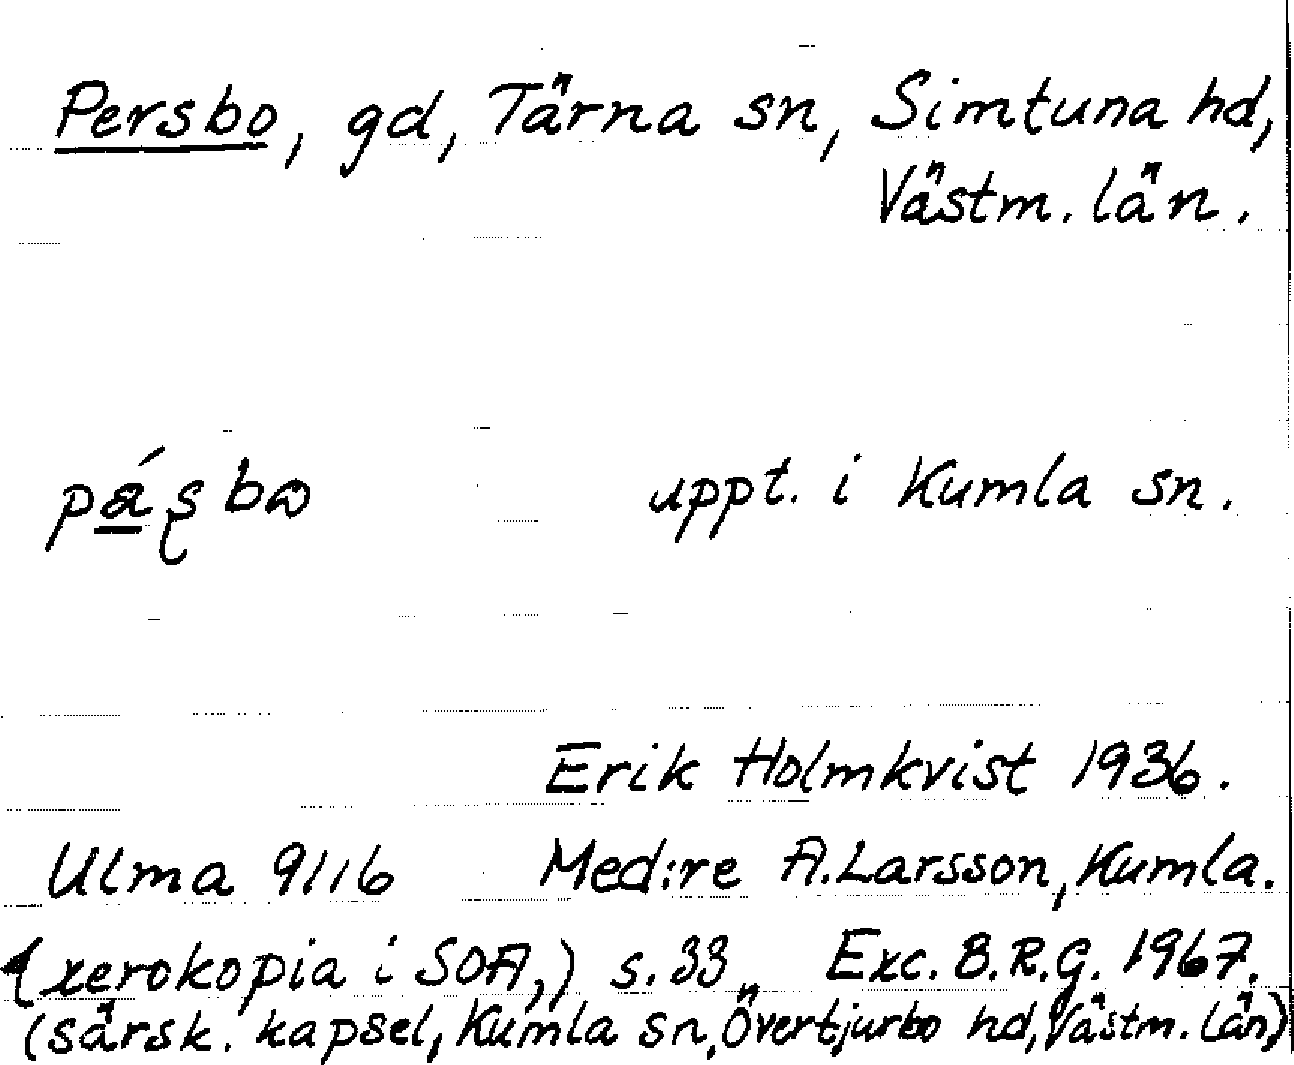 Persbo, gd, Tärna sn, Simtuna hd,
Västm. län.
pá̲ʂbɷ uppt. i Kumla sn.
Erik Holmkvist 1936.
Ulma 9116 Med:re A. Larsson, Kumla.
(xerokopia i SOA,) s. 33 Exc. B.R.G. 1967.
(särsk. kapsel, Kumla sn, Övertjurbo hd, Västm. län)